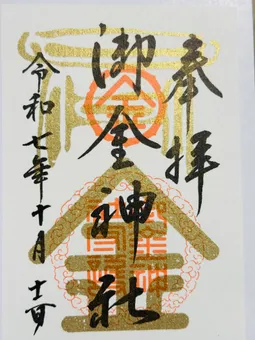 奉拝
御金神社
令和七年十月十一日